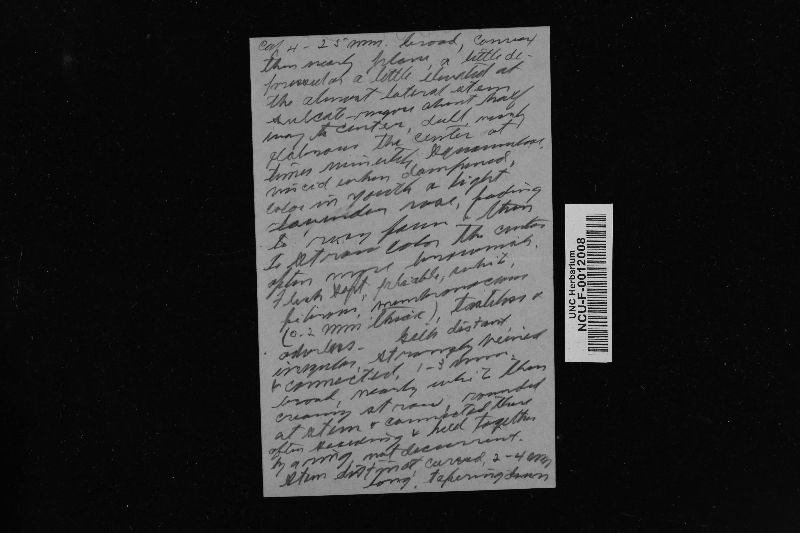 Cap 4-25 mm. broad, convex
then nearly plane, a little de-
pressed or a little elevated at
the almost lateral stem
sulcate-rugose about half
way to center, dull, nearly
glabrous the center at
times minutely squamulose,
viscid when dampened,
color in youth a light
lavender rose, fading
to rosy fawn & then
to straw color the center
often more brownish.
Flesh soft, pliable, white,
fibrous, membranaceous
(0.2 mm thick), tasteless &
odorless. Gills distant
irregular, strongly veined
& connected, 1-3 mm.
broad, nearly white then
creamy straw, rounded
at stem & connected there
often seceding & held together
by a ring not decurrent.
Stem distinct curved, 2-4 mm
long, tapering down
UNC Herbarium
NCU-F-0012008